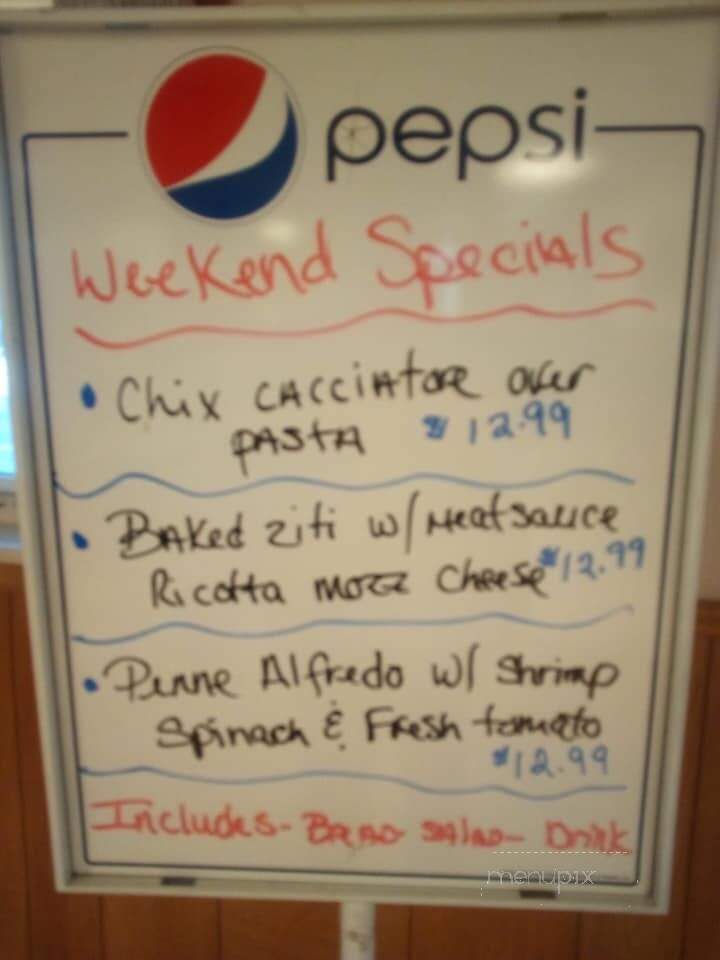 pepsi
Weekend Specials
• Chix CACCIAtore over
PASTA $12.99
• BAKed ziti w/ Meatsauce
Ricotta mozz Cheese $12.99
• Penne Alfredo w/ Shrimp
Spinach & Fresh tomato
$12.99
Includes- BREAD SALAD- Drink
menupix